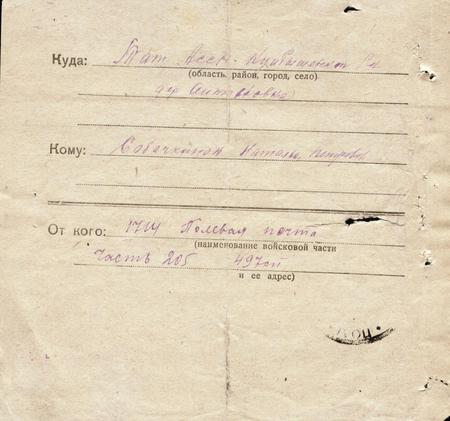 Куда: Тат Асср. Куйбышевский Рн
(область, район, город, село)
Кому: Собачкиной Наталь Петров
От кого: 1714 Полевая почта
(наименование войсковой части
часть 205 497сп
и ее адрес)